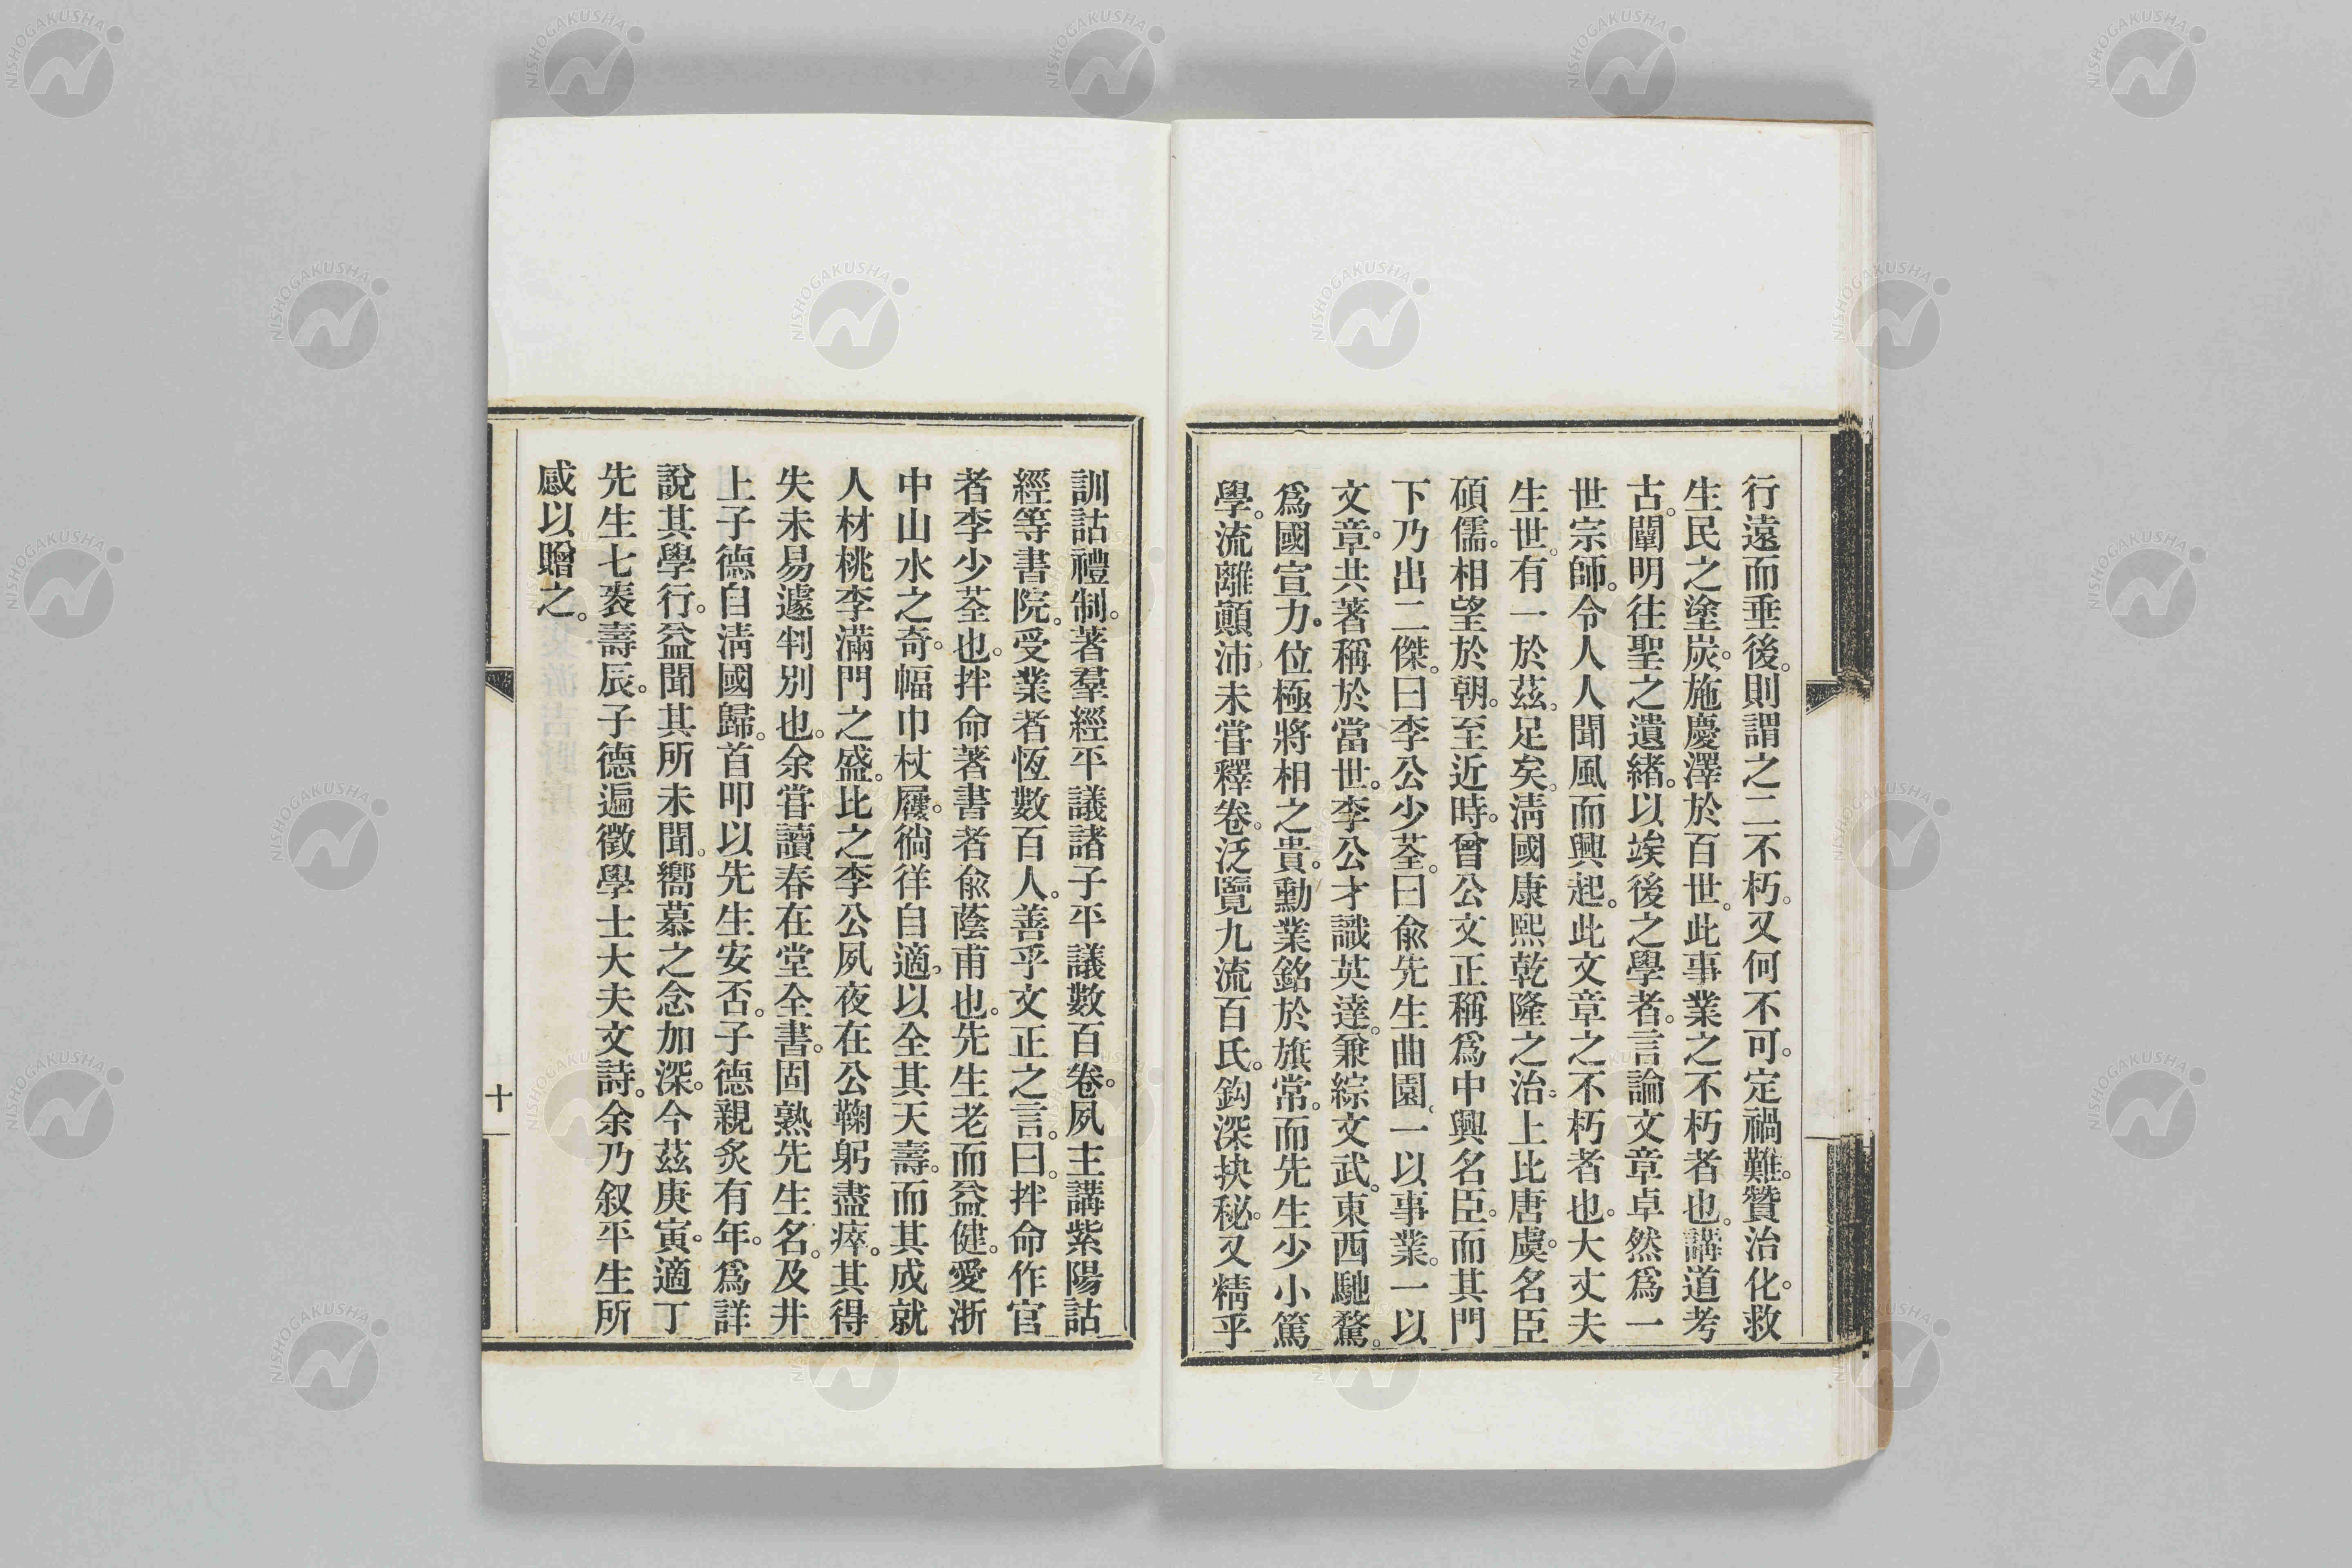 行遠而垂後。則謂之二不朽。又何不可。定禍難。贊治化。救
生民之塗炭。施慶澤於百世。此事業之不朽者也。講道考
古。闡明往聖之遺緒。以竢後之學者。言論文章卓然爲一
世宗師。令人人聞風而興起。此文章之不朽者也。大丈夫
生世。有一於茲。足矣。淸國康熙乾隆之治。上比唐虞。名臣
碩儒。相望於朝。至近時。曾公文正稱爲中興名臣。而其門
下乃出二傑。曰李公少荃。曰兪先生曲園。一以事業。一以
文章。共著稱於當世。李公才識英達。兼綜文武。東西馳騖。
爲國宣力。位極將相之貴。勳業銘於旗常。而先生少小篤
學。流離顚沛。未甞釋卷。泛覽九流百氏。鈎深抉秘。又精乎
訓詁禮制。著羣經平議諸子平議數百卷。夙主講紫陽詁
經等書院。受業者恆數百人。善乎文正之言。曰。拌命作官
者李少荃也。拌命著書者兪蔭甫也。先生老而益健。愛浙
中山水之奇。幅巾杖屨。徜徉自適。以全其天壽。而其成就
人材桃李滿門之盛。比之李公夙夜在公鞠躬盡瘁。其得
失未易遽判別也。余甞讀春在堂全書。固熟先生名。及井
上子德自淸國歸。首叩以先生安否。子德親炙有年。爲詳
說其學行。益聞其所未聞。嚮慕之念加深。今茲庚寅。適丁
先生七袠壽辰。子德遍徵學士大夫文詩。余乃叙平生所
感以贈之。
十
NISHOGAKUSHA